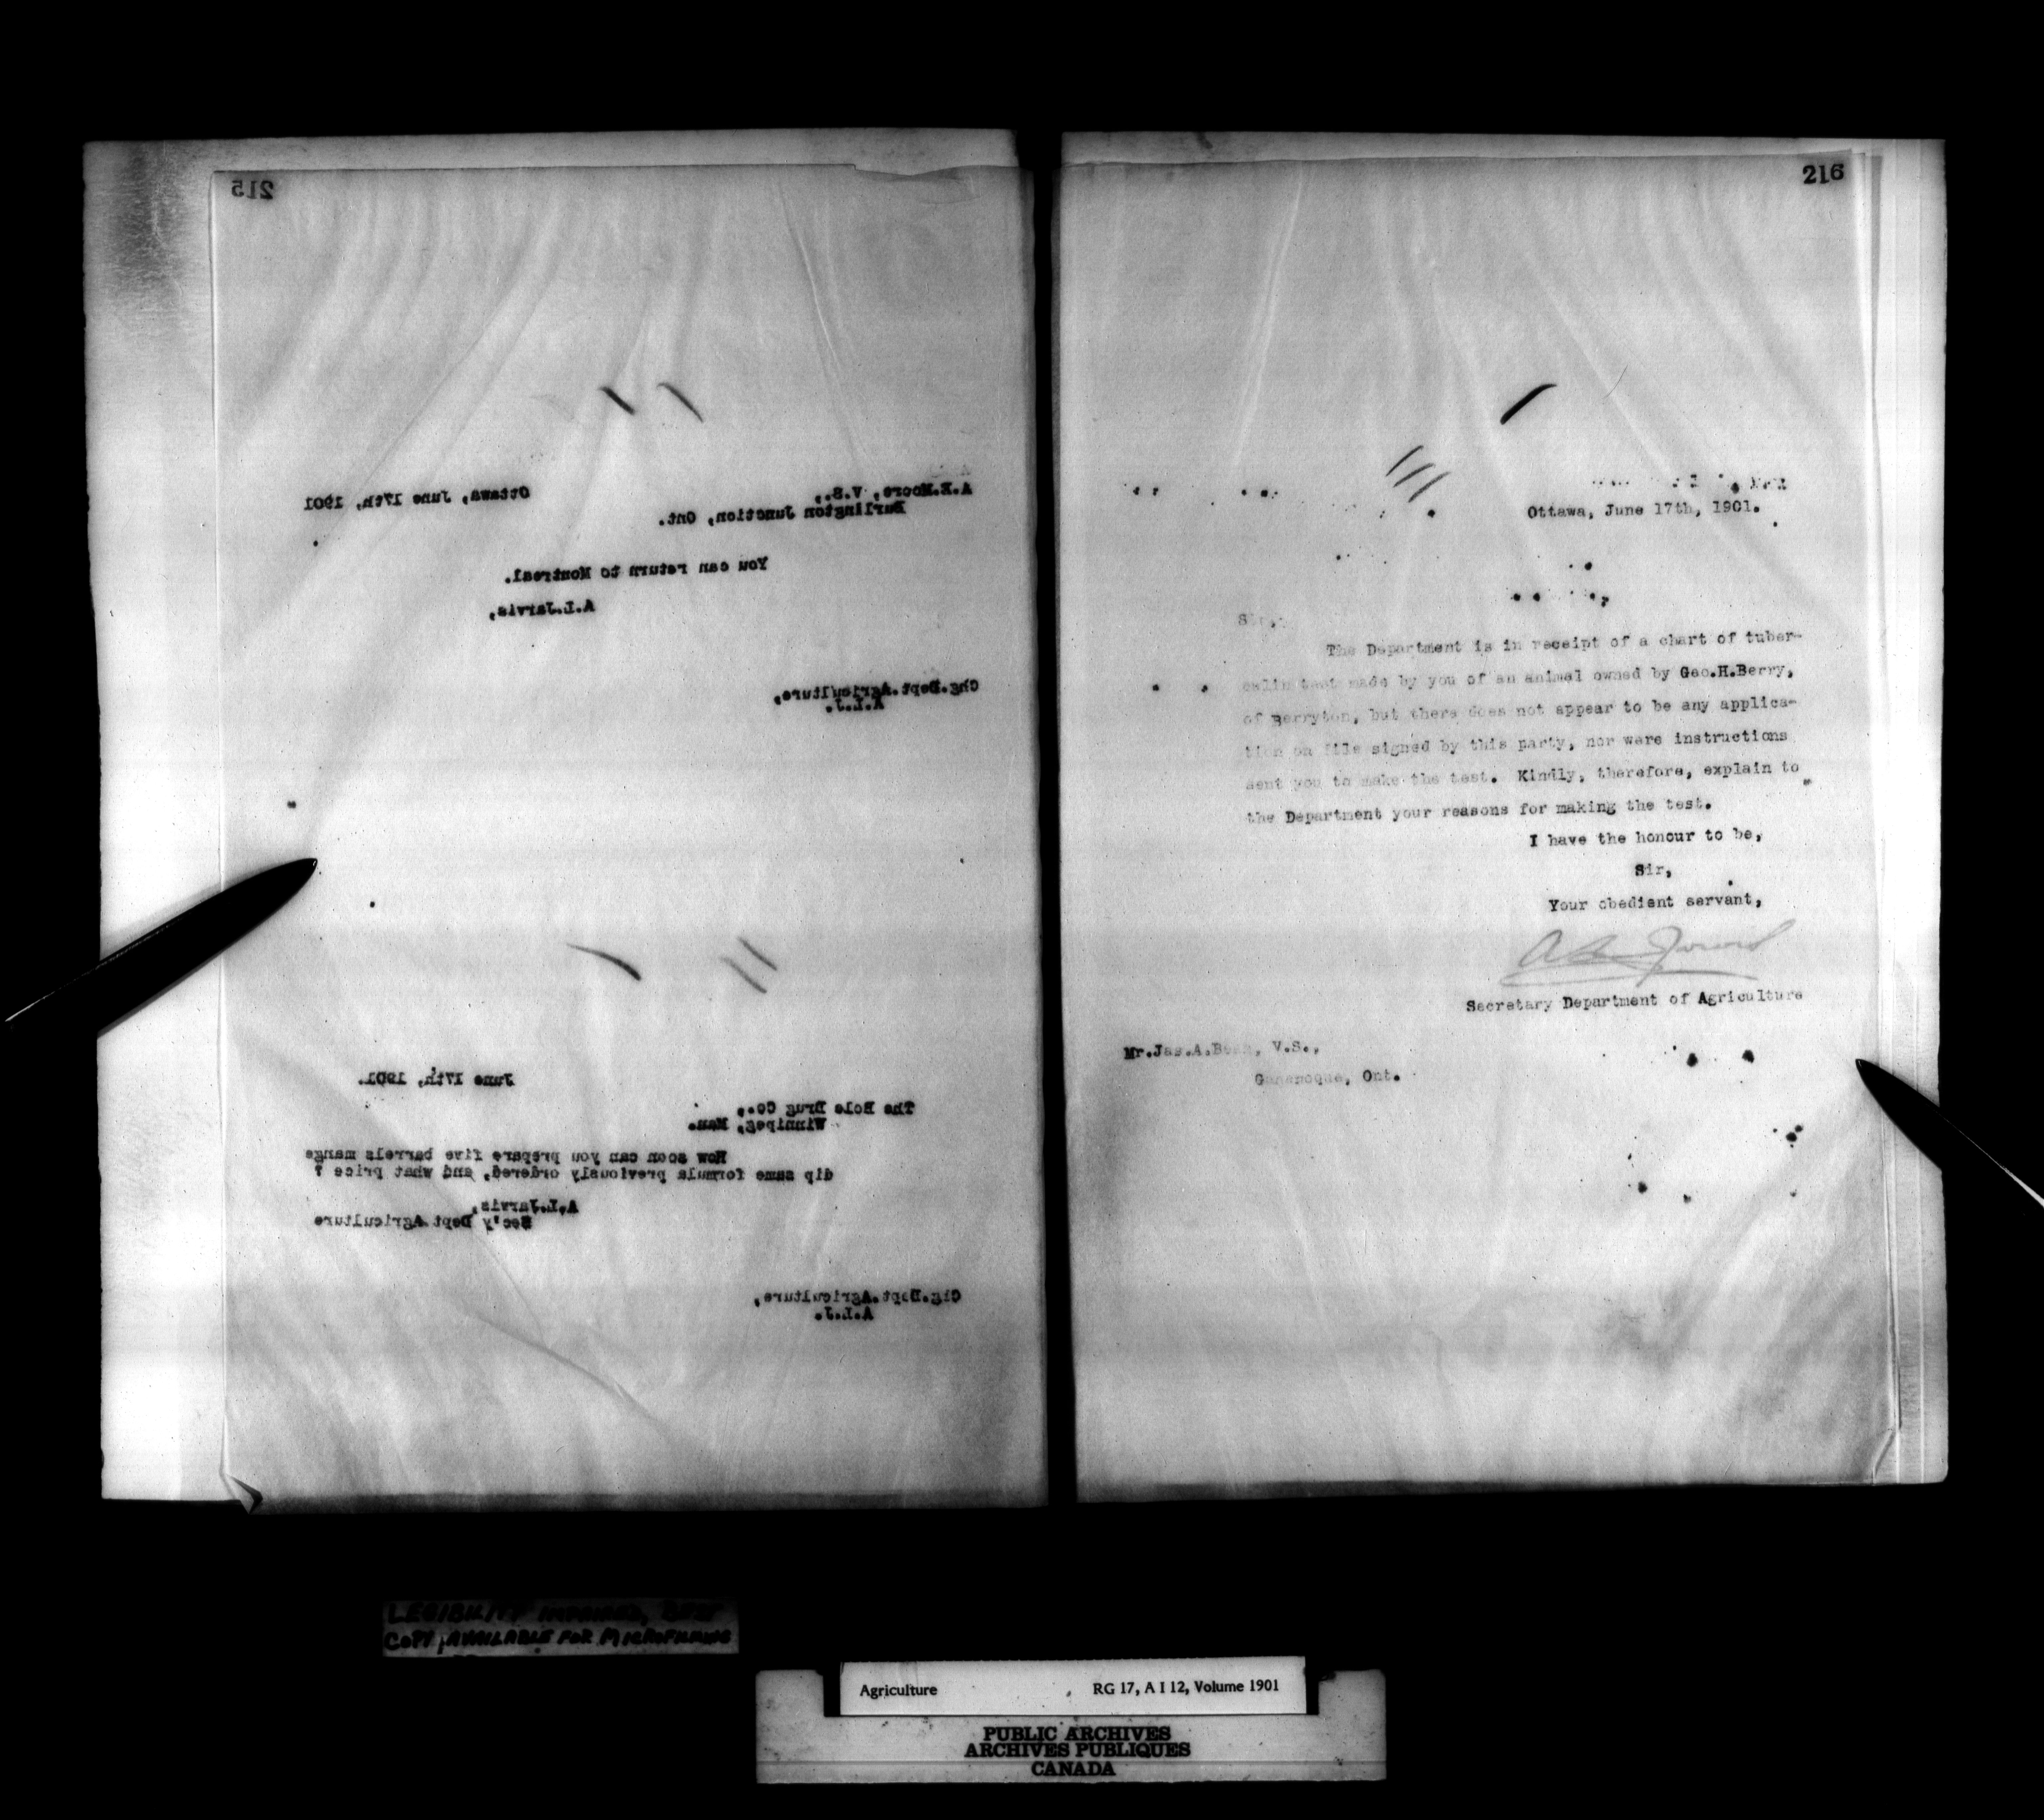 215
Ottawa, June 17th, 1901
A.E.Moore, V.S.,
Burlington Junction, Ont.
You can return to Montreal.
A.L.Jarvis,
Chg.Dept.Agriculture,
A.L.J.
June 17th, 1901.
The Bole Drug Co.,
Winnipeg, Man.
How soon can you prepare five barrels mange
dip same formula previously ordered, and what price ?
A.L.Jarvis,
Sec'y Dept.Agriculture
Chg.Dept.Agriculture,
A.L.J.
216
Ottawa, June 17th, 1901.
Sir,
The Department is in receipt of a chart of tuber-
culin test made by you of an animal owned by Geo.H.Berry,
of Berryton, but there does not appear to be any applica-
tion on file signed by this party, nor were instructions
sent you to make the test. Kindly, therefore, explain to
the Department your reasons for making the test.
I have the honour to be,
Sir,
Your obedient servant,
A L Jarvis
Secretary Department of Agriculture
Mr.Jas.A. V.S.,
Gananoque, Ont.
LEGIBILITY IMPAIRED, BEST
COPY AVAILABLE FOR MICROFILMING
Agriculture RG 17, A I 12, Volume 1901
PUBLIC ARCHIVES
ARCHIVES PUBLIQUES
CANADA